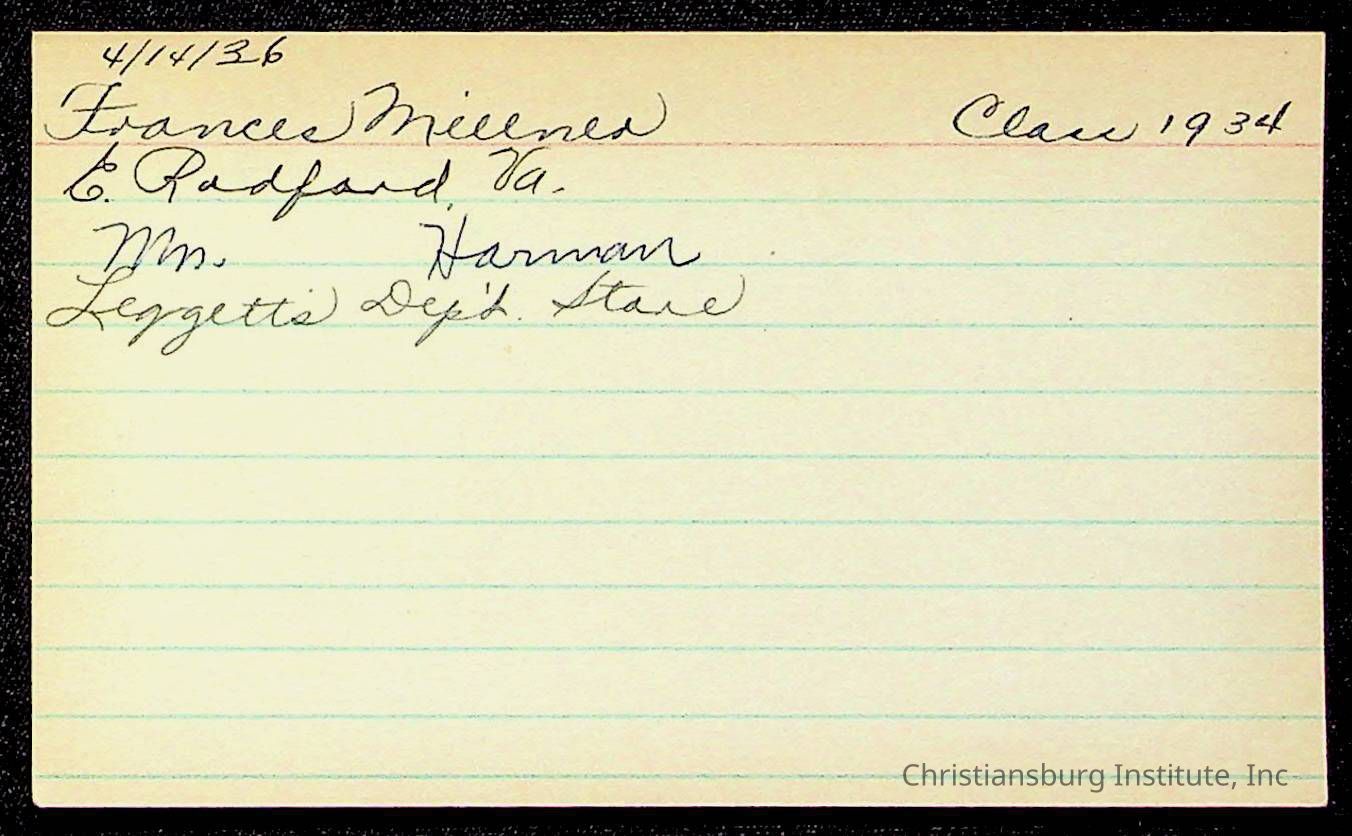 4/14/36
Frances Millner Class 1934
E. Radford, Va.
Mrs. Harman
Leggett's Dep't. Store
Christiansburg Institute, Inc